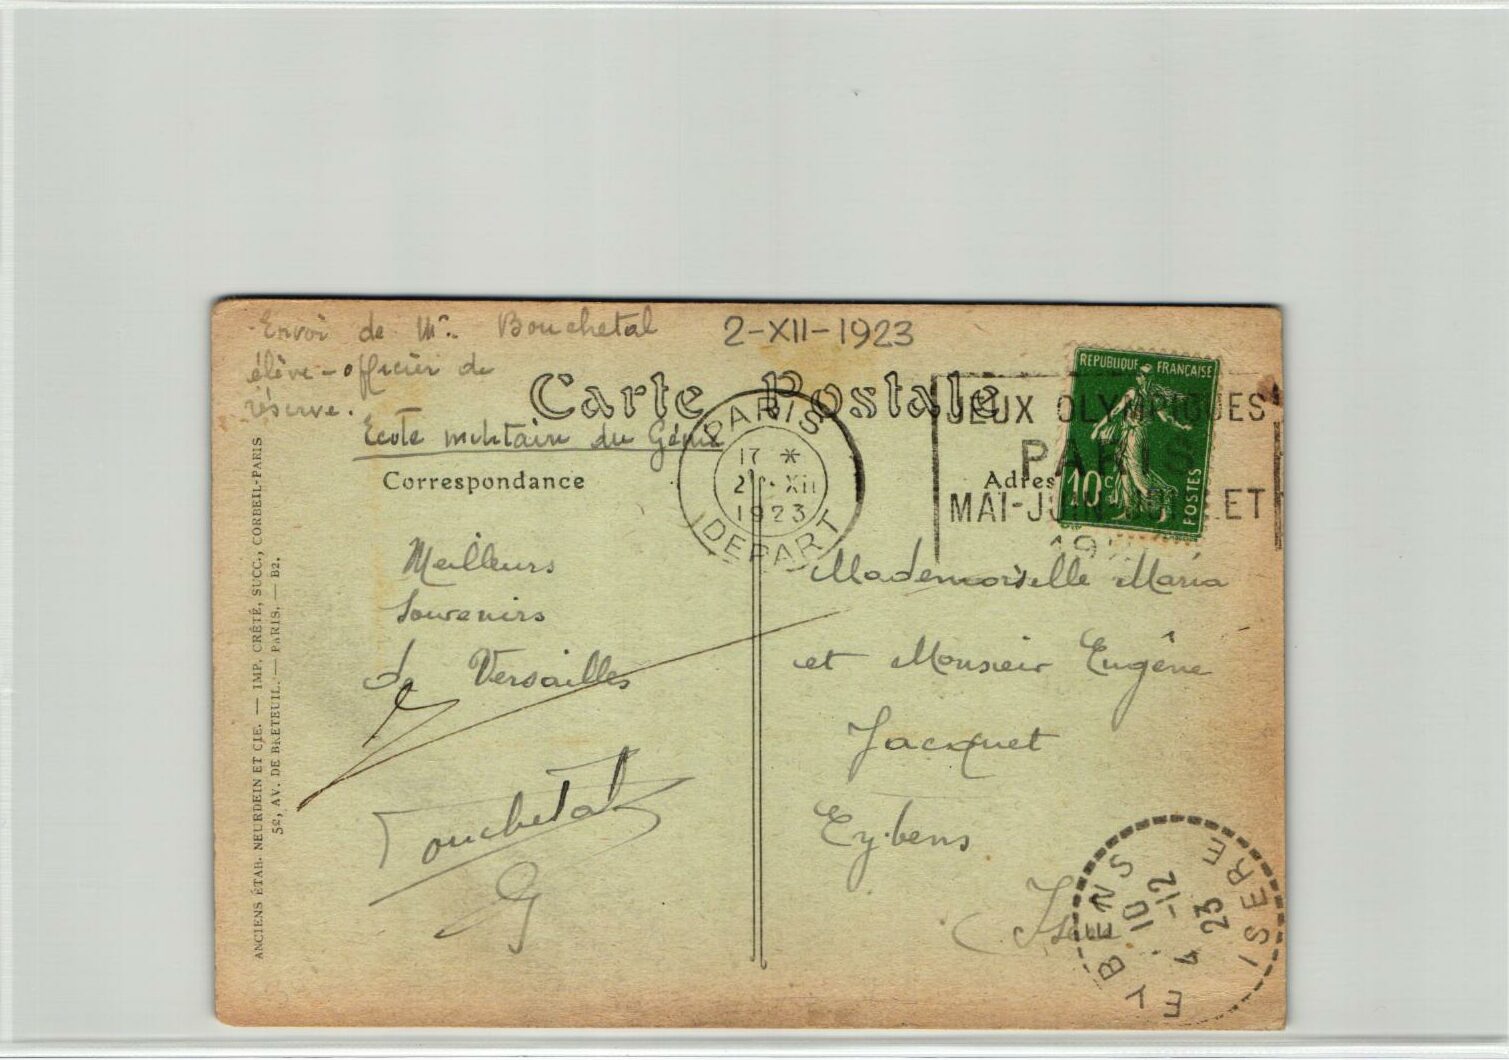 Envoi de Mr. Bouchetal
2-XII-1923
élève-officier de
réserve.
Carte Postale
Ecole militaire du Génie
Correspondance
Adres
REPUBLIQUE FRANÇAISE
10c
POSTES
PARIS
17 *
2 XII
1923
DEPART
JEUX OLYMPIQUES
PARIS
MAI-JUIN-JUILLET
Meilleurs
Souvenirs
de Versailles
Bouchetal
Mademoiselle Maria
et Monsieur Eugêne
Jacquet
Eybens
Isère
EYBENS
10
4 -12
23
ISERE
ANCIENS ÉTAB. NEURDEIN ET CIE. — IMP. CRÉTÉ, SUCC., CORBEIL-PARIS
52, AV. DE BRETEUIL. — PARIS. — B2.